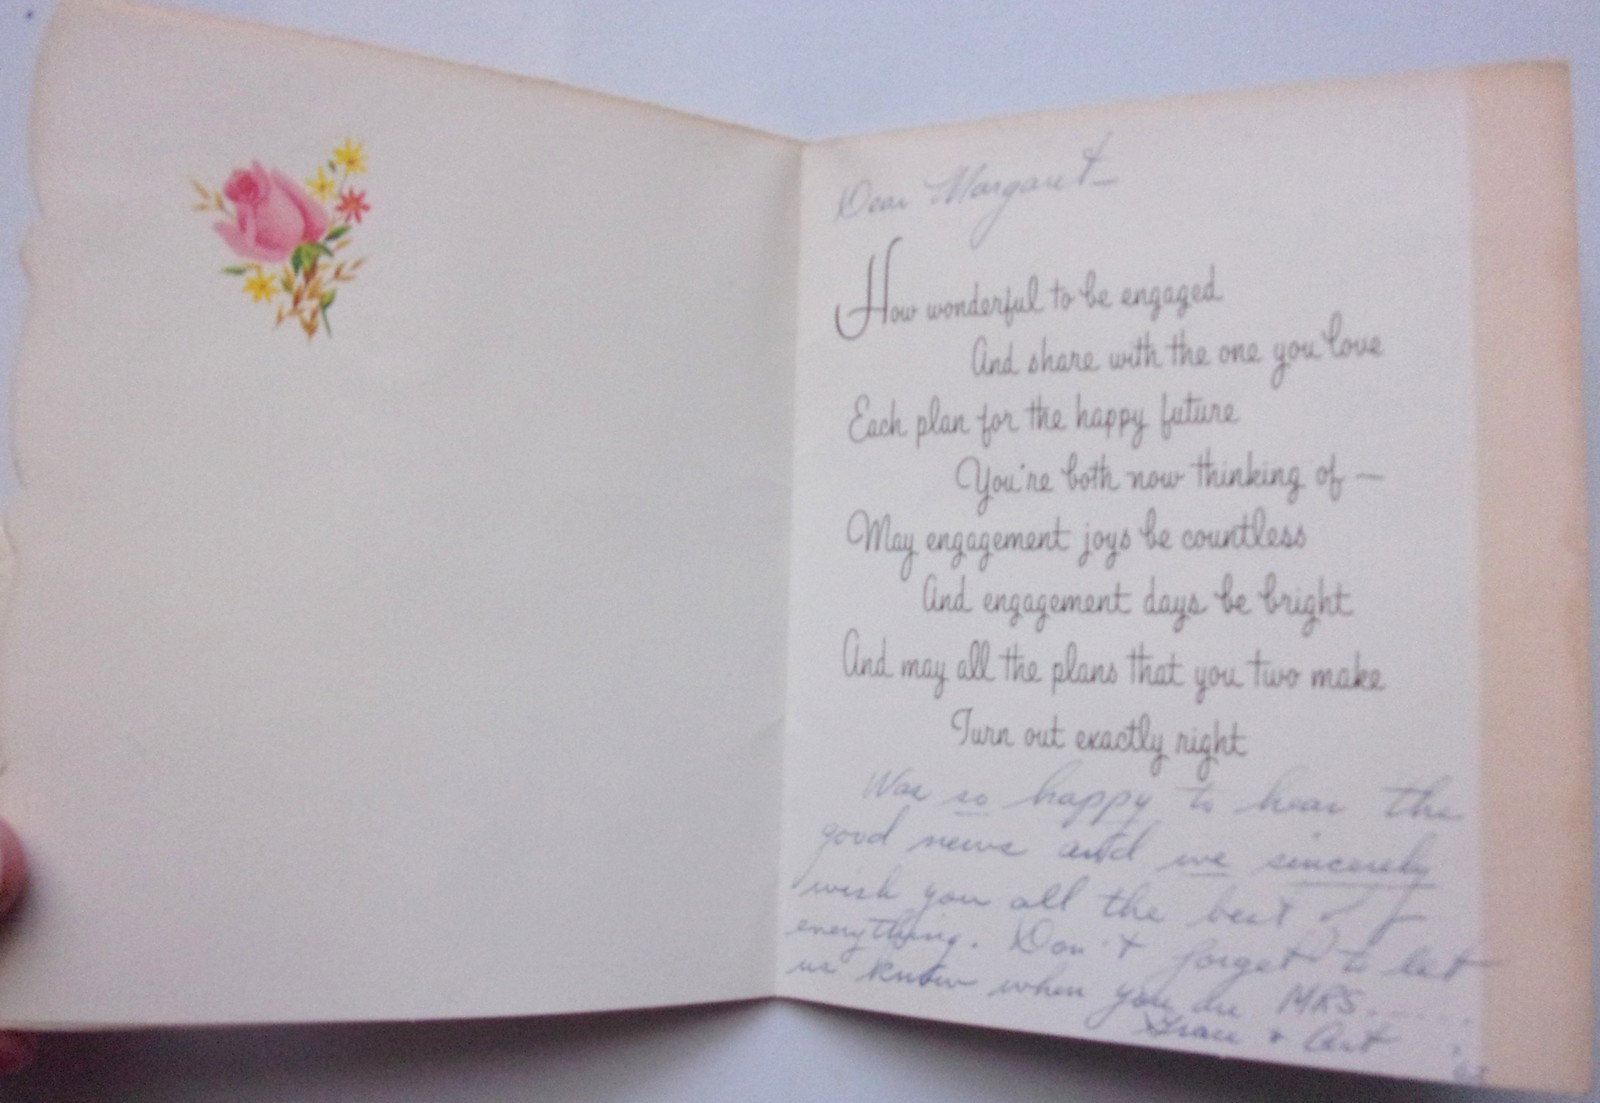 Dear Margaret—
How wonderful to be engaged
And share with the one you love
Each plan for the happy future
You're both now thinking of —
May engagement joys be countless
And engagement days be bright
And may all the plans that you two make
Turn out exactly right
Was so happy to hear the
good news and we sincerely
wish you all the best of
everything. Don't forget to let
us know when you are MRS......
Grace + Art